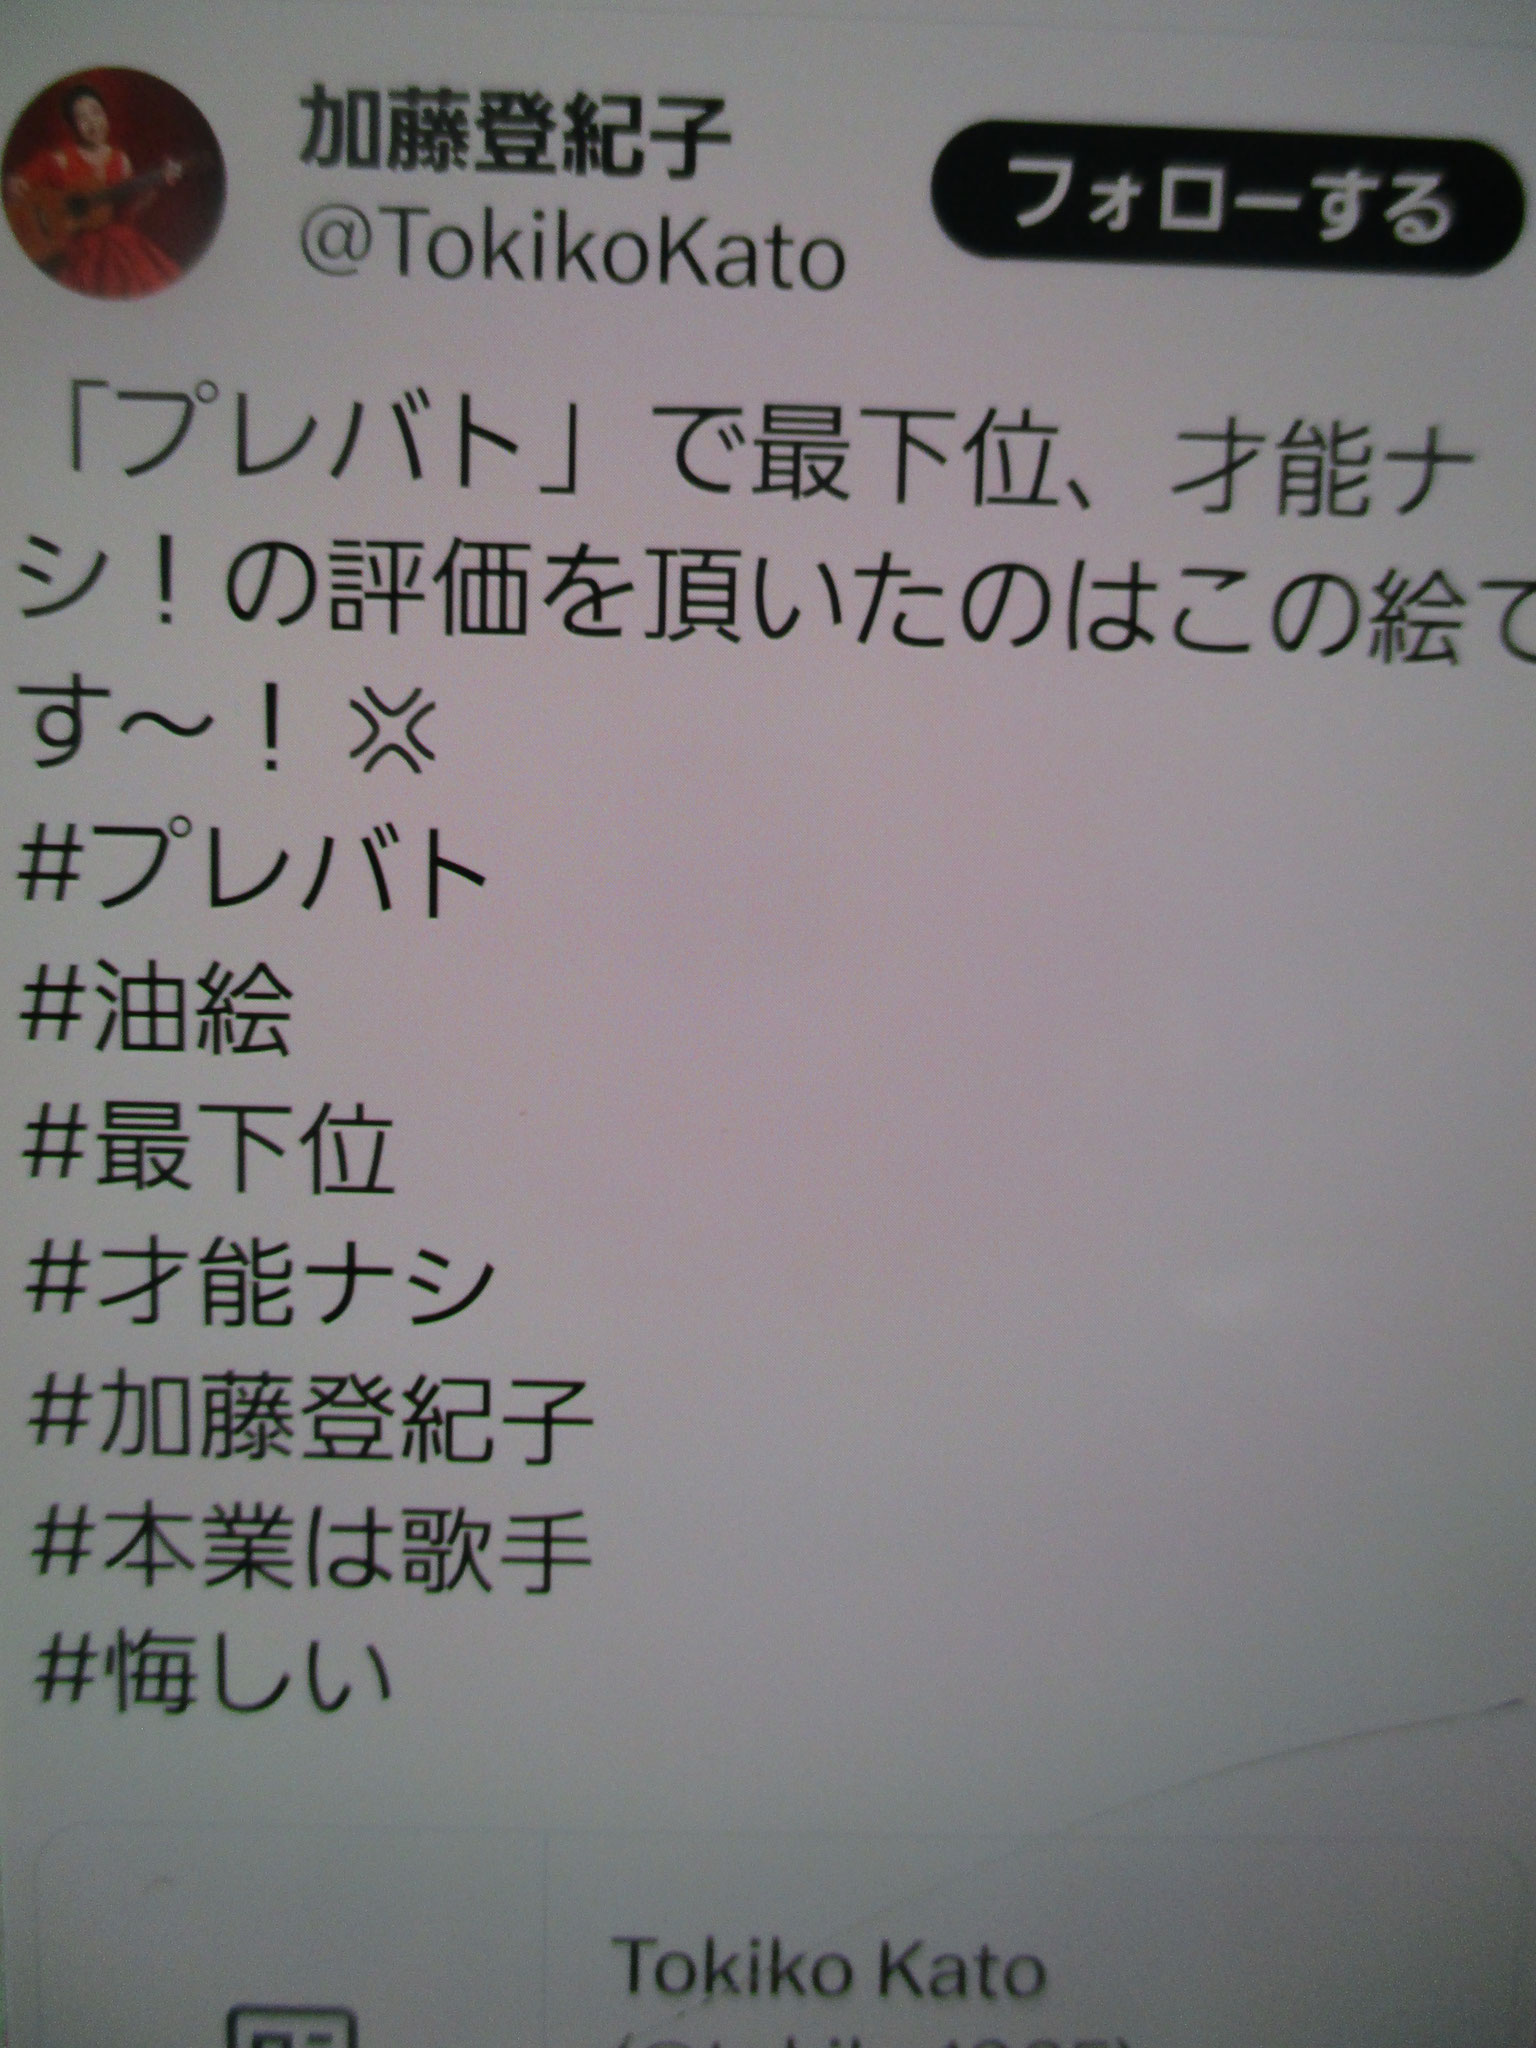 加藤登紀子
@TokikoKato
フォローする
「プレバト」で最下位、才能ナ
シ！の評価を頂いたのはこの絵で
す〜！💢
#プレバト
#油絵
#最下位
#才能ナシ
#加藤登紀子
#本業は歌手
#悔しい
Tokiko Kato